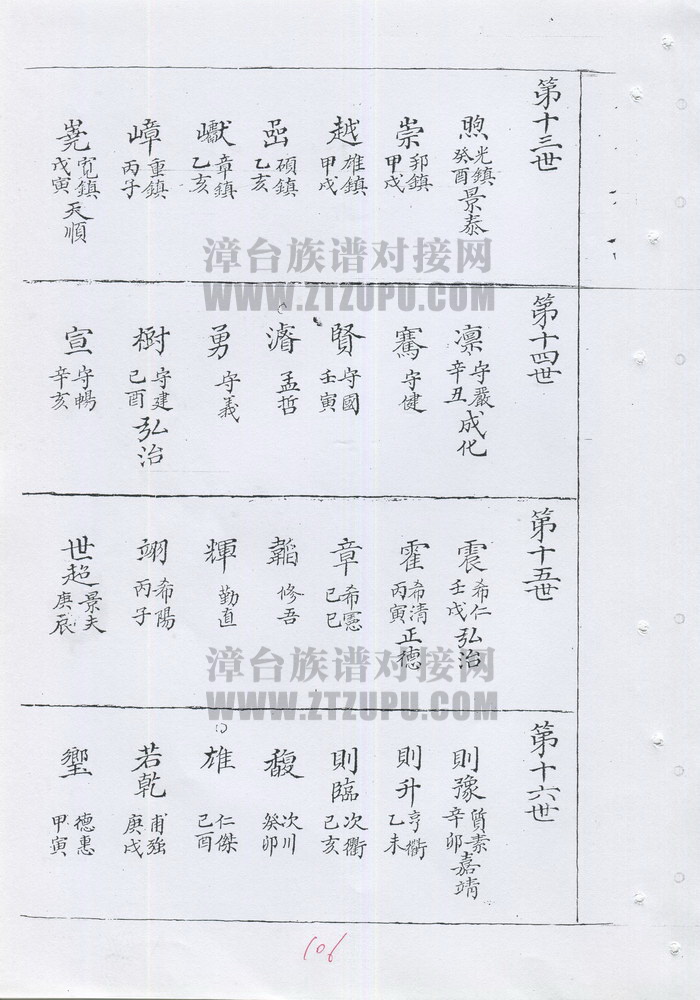 第十三世
煦 光鎮 癸酉 景泰
崇 郛鎮 甲戌
越 雄鎮 甲戌
嵒 碩鎮 乙亥
巘 章鎮 乙亥
嶂 重鎮 丙子
嶤 寬鎮 戊寅 天順
漳台族谱对接网
WWW.ZTZUPU.COM
第十四世
凛 守嚴 辛丑 成化
騫 守健
賢 守國 壬寅
濬 孟哲
勇 守義
樹 守建 己酉 弘治
宣 守暢 辛亥
第十五世
震 希仁 壬戌 弘治
霍 希清 丙寅 正德
章 希憲 己巳
韜 修吾
輝 勤直
翊 希陽 丙子
世超 景夫 庚辰
漳台族谱对接网
WWW.ZTZUPU.COM
第十六世
則豫 質素 辛卯 嘉靖
則升 亨衢 乙未
則臨 次衢 己亥
馥 次川 癸卯
雄 仁傑 己酉
若乾 甫強 庚戌
德惠 甲寅
106